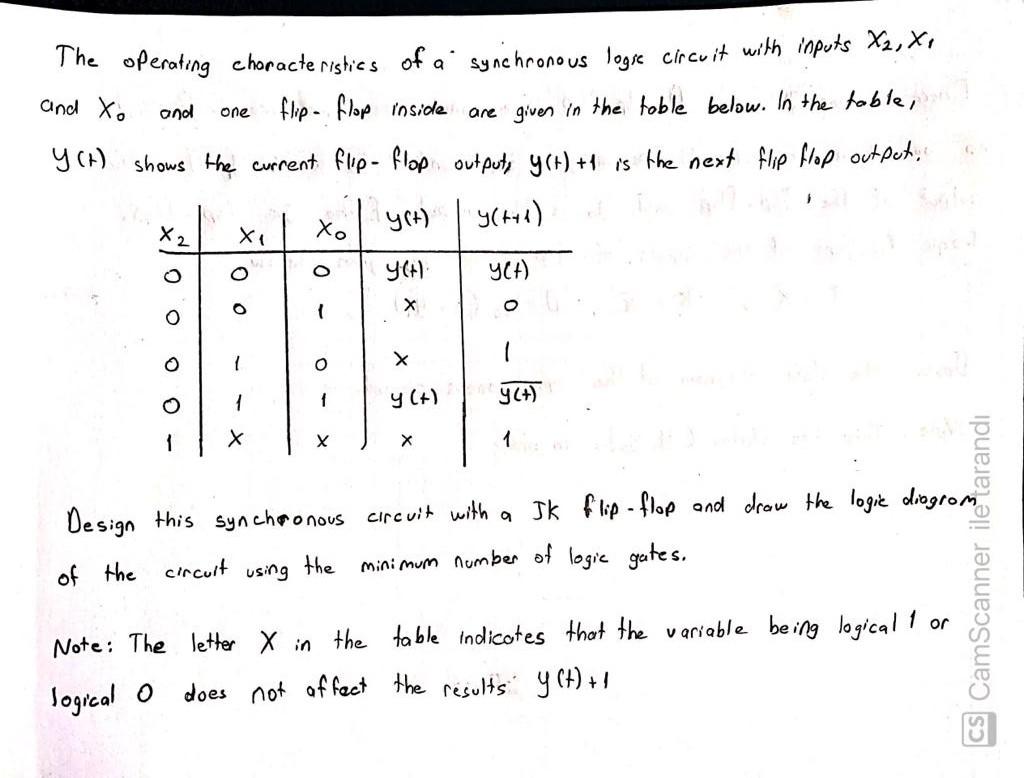 The operating characteristics of a synchronous logic circuit with inputs X2, X1
and X0 and one flip-flop inside are given in the table below. In the table,
y(t) shows the current flip-flop output, y(t)+1 is the next flip flop output.
X2 X1 X0 y(t) y(t+1)
0 0 0 y(t) y(t)
0 0 1 X 0
0 1 0 X 1
0 1 1 y(t) y(t)̅
1 X X X 1
Design this synchronous circuit with a Jk flip-flop and draw the logic diagram
of the circuit using the minimum number of logic gates.
Note: The letter X in the table indicates that the variable being logical 1 or
logical 0 does not affect the results y(t)+1
CS CamScanner ile tarandı